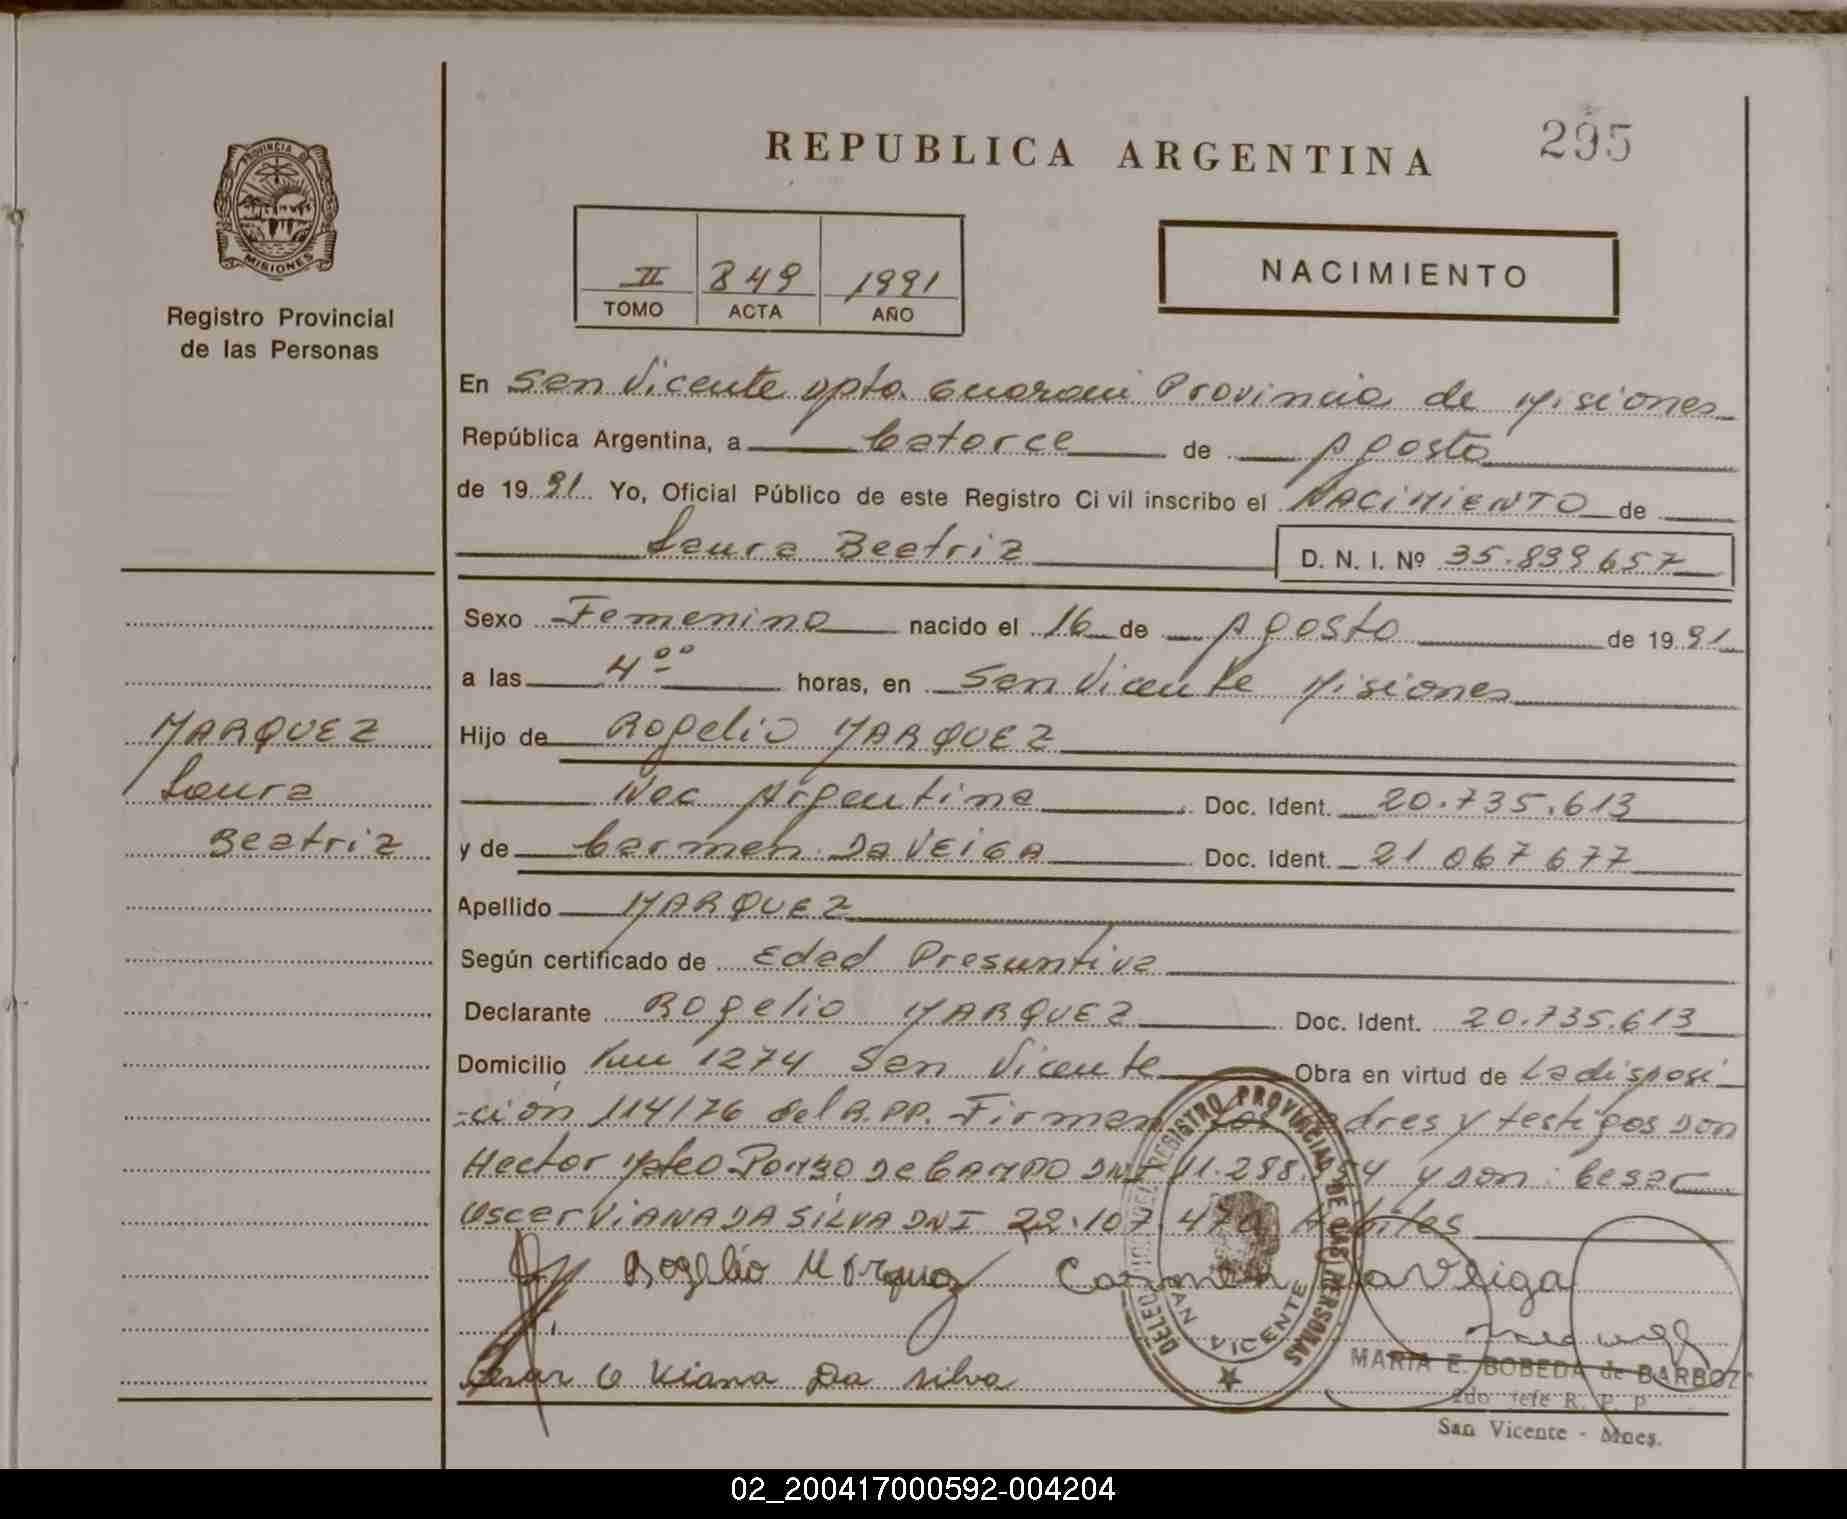 295
REPUBLICA ARGENTINA
PROVINCIA DE
MISIONES
Registro Provincial
de las Personas
II 849 1991
TOMO ACTA AÑO
NACIMIENTO
En San Vicente Dpto. Guarani Provincia de Misiones
República Argentina, a Catorce de Agosto
de 19 91 Yo, Oficial Público de este Registro Civil inscribo el NACIMIENTO de
Laura Beatriz D. N. I. Nº 35.839657
Sexo Femenino nacido el 16 de Agosto de 19 91
a las 4ºº horas, en San Vicente Misiones
MARQUEZ
Laura
Beatriz
Hijo de Rogelio MARQUEZ
Nac Argentina Doc. Ident. 20.735.613
y de Carmen DA VEIGA Doc. Ident. 21 067 677
Apellido MARQUEZ
Según certificado de Edad Presuntiva
Declarante Rogelio MARQUEZ Doc. Ident. 20.735.613
Domicilio Km 1274 San Vicente Obra en virtud de La disposi
-ción 114/76 del R.P.P. Firman los padres y testigos Don
Hector DE CAMPO DNI 11.288.954 y Don: Cesar
Oscar VIANA DA SILVA DNI 22.107.470 Habiles
Rogelio Marquez Carmen DaVeiga
Cesar O Viana Da Silva
DELEGACION DEL REGISTRO PROVINCIAL DE LAS PERSONAS
SAN VICENTE
MARIA E. BOBEDA de BARBOZ
2do Jefe R. P. P.
San Vicente - Mnes.
02_200417000592-004204